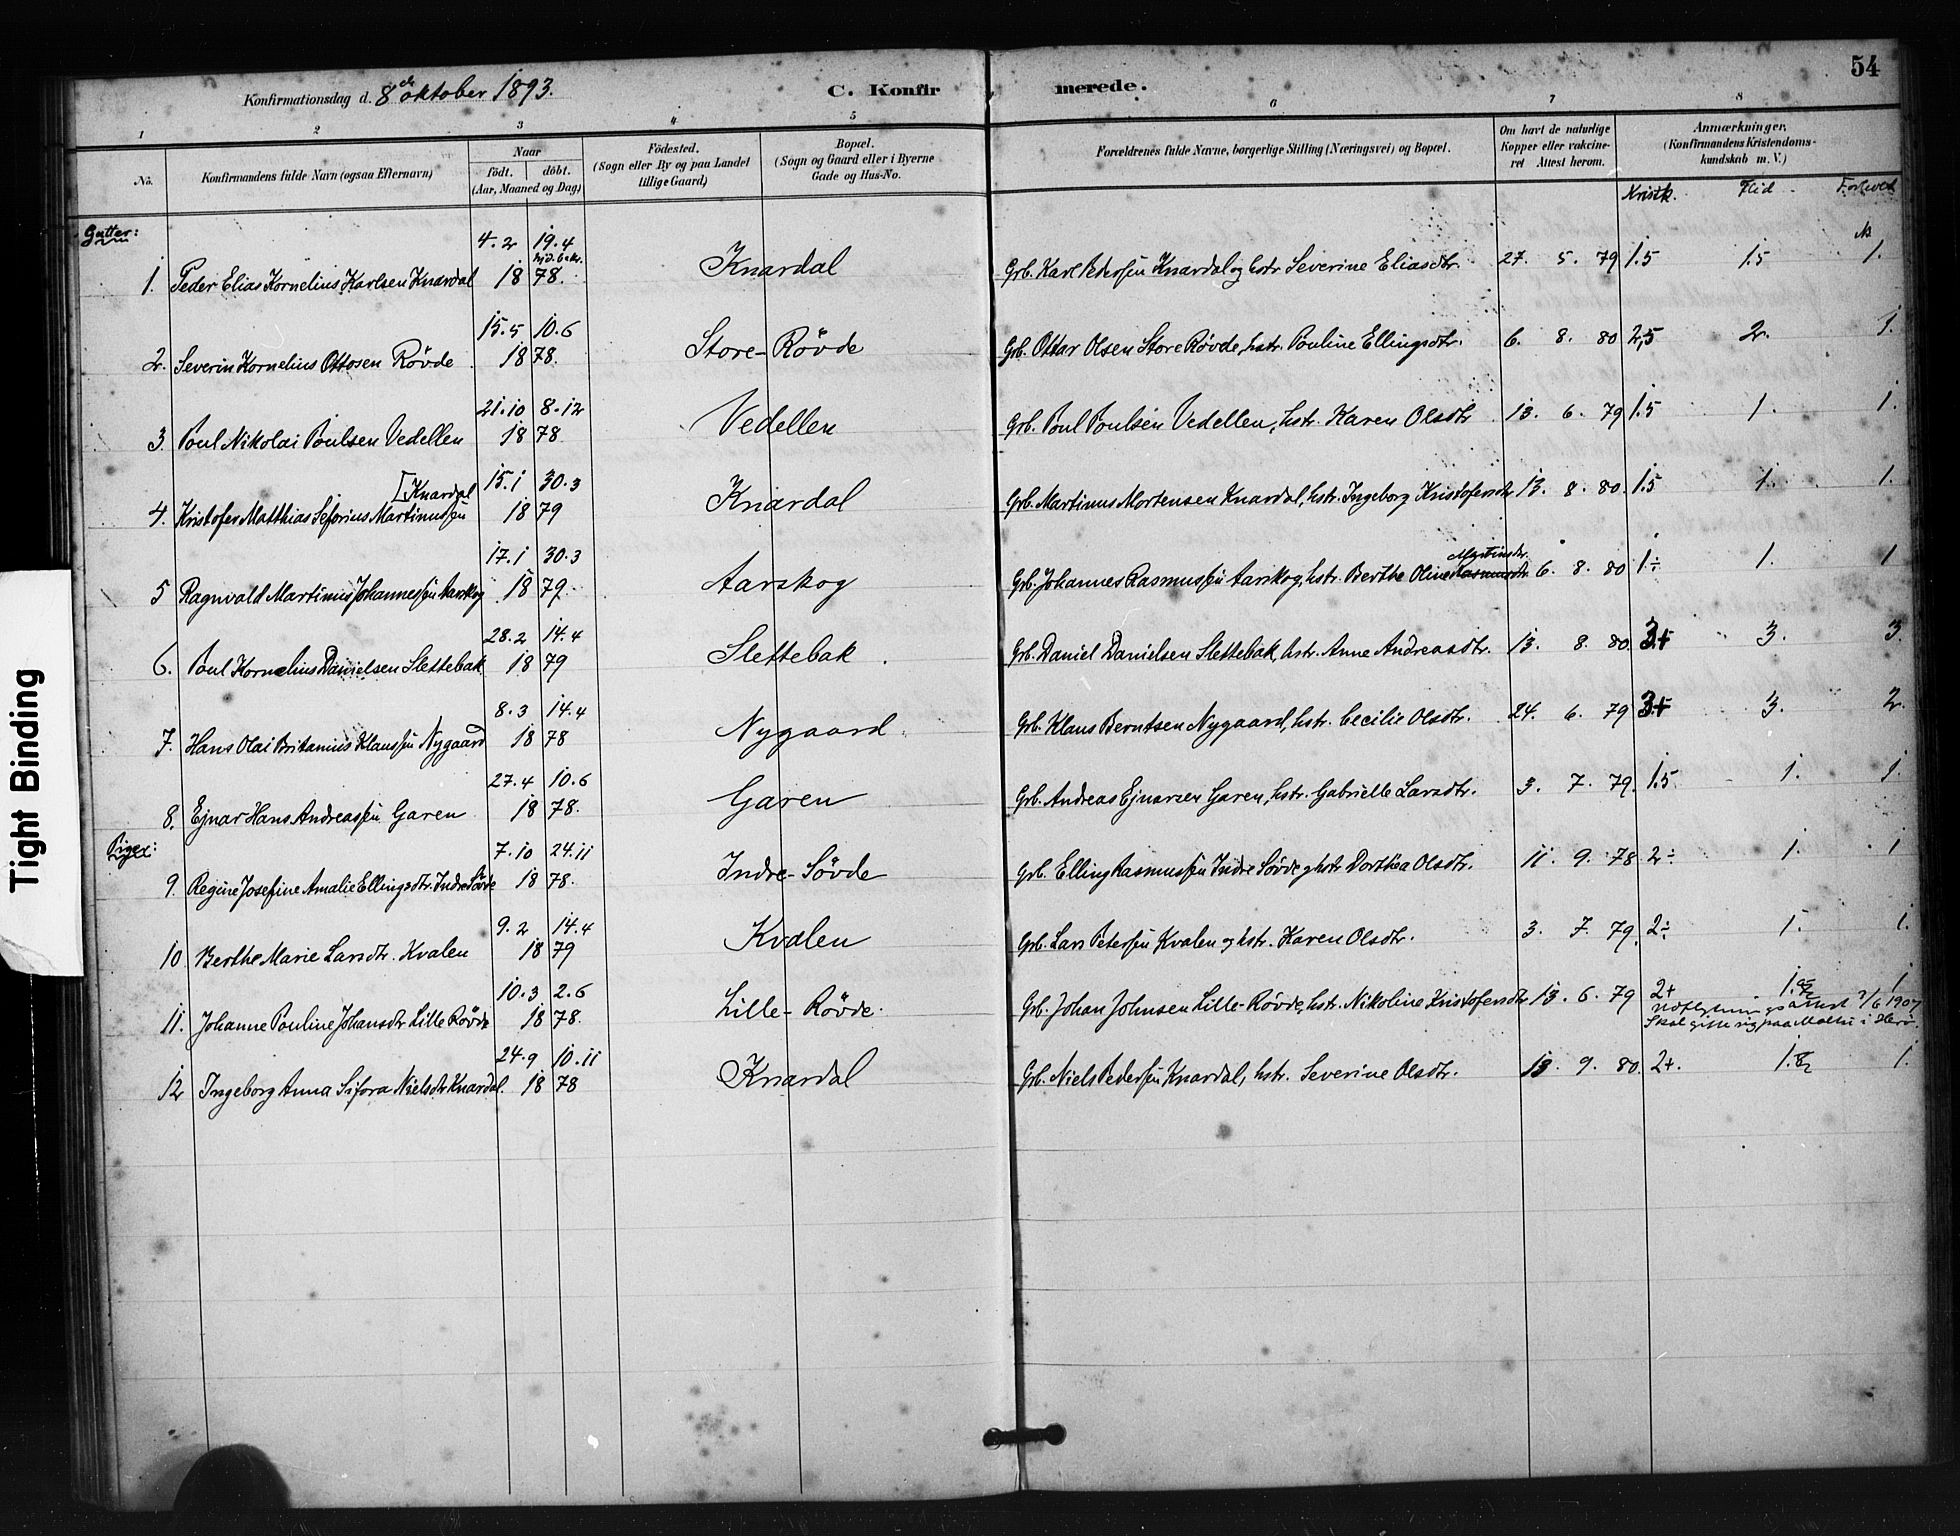 54
Konfirmationsdag d. 8de oktober 1893.
C. Konfirmerede.
1 2 3 4 5 6 7 8
No.
Konfirmandens fulde Navn (ogsaa Efternavn)
Naar
født. døbt.
(Aar, Maaned og Dag)
Födested.
(Sogn eller By og paa Landet
tillige Gaard)
Bopæl.
(Sogn og Gaard eller i Byerne
Gade og Hus-No.
Forældrenes fulde Navne, borgerlige Stilling (Næringsvei) og Bopæl.
Om havt de naturlige
Kopper eller vakcine-
ret Attest herom.
Anmærkninger.
(Konfirmandens Kristendoms-
kundskab m. V.)
Kristk. Flid Forhold
Gutter:
1. Peder Elias Kornelius Karlsen Knardal 4.2 19.4 hjd. 1878. Knardal Grb. Karl Pedersen Knardal og hstr Severine Eliasdtr. 27. 5. 79 1.5 1.5 1.
2. Severin Kornelius Ottosen Rövde 15.5 10.6 1878. Store-Rövde Grb. Ottar Olsen Store Rövde, hstr. Pouline Ellingsdtr. 6. 8. 80 2,5 2. 1.
3. Poul Nikolai Poulsen Vedellen 21.10 8.12 1878 Vedellen Grb. Poul Poulsen Vedellen, hstr. Karen Olsdtr 13. 6. 79 1.5 1. 1.
4. Kristofer Matthias Seforius Martinussen [Knardal 15.1 30.3 1879 Knardal Grb. Martinus Mortensen Knardal, hstr. Ingeborg Kristofersdtr 13. 8. 80. 1.5 1. 1.
5 Ragnvald Martinus Johannessen Aarskog 17.1 30.3 1879. Aarskog Grb. Johannes Rasmussen Aarskog, hstr. Berthe Oline Rasmusdtr Martinsdtr. 6. 8. 80 1÷ 1. 1
6. Poul Kornelius Danielsen Slettebak 28.2 14.4 1879 Slettebak. Grb. Daniel Danielsen Slettebak, hstr. Anne Andreasdtr. 13. 8. 80. 3+ 3. 3.
7. Hans Olai Britanius Klaussen Nygaard 8.3 14.4 1878 Nygaard. Grb. Klaus Berntsen Nygaard, hstr. Cecilie Olsdtr. 24. 6. 79 3+ 3. 2.
8. Ejnar Hans Andreassen Garen 27.4 10.6 1878. Garen Grb. Andreas Ejnarsen Garen, hstr. Gabrielle Larsdtr. 3. 7. 79. 1.5 1. 1.
Piger:
9. Regine Josefine Amalie Ellingsdtr. Indre Sövde 7.10 24.11 1878. Indre-Sövde Grb. Elling Rasmussen Indre Sövde og hstr Dorthea Olsdtr. 11. 9. 78 2÷ 1. 1
10 Berthe Marie Larsdtr. Kvalen 9.2 14.4 1879 Kvalen Grb. Lars Petersen Kvalen og hstr. Karen Olsdtr. 3. 7. 79. 2÷ 1. 1.
11. Johanne Pouline Johansdtr Lille Rövde 10.3 2.6 1878. Lille-Rövde. Grb. Johan Johnsen Lille-Rövde, hstr. Nikoline Kristofersdtr 13. 6. 79 2+ 1. 1
Udflytningsattest 7/6 1907
Skal gifte sig paa Moltu i Herö.
12 Ingeborg Anna Sifora Nielsdtr Knardal. 24.9 10.11 1878 Knardal Grb. Niels Pedersen Knardal, hstr. Severine Olsdtr. 13. 9. 80. 2+. 1. 1.
Tight Binding